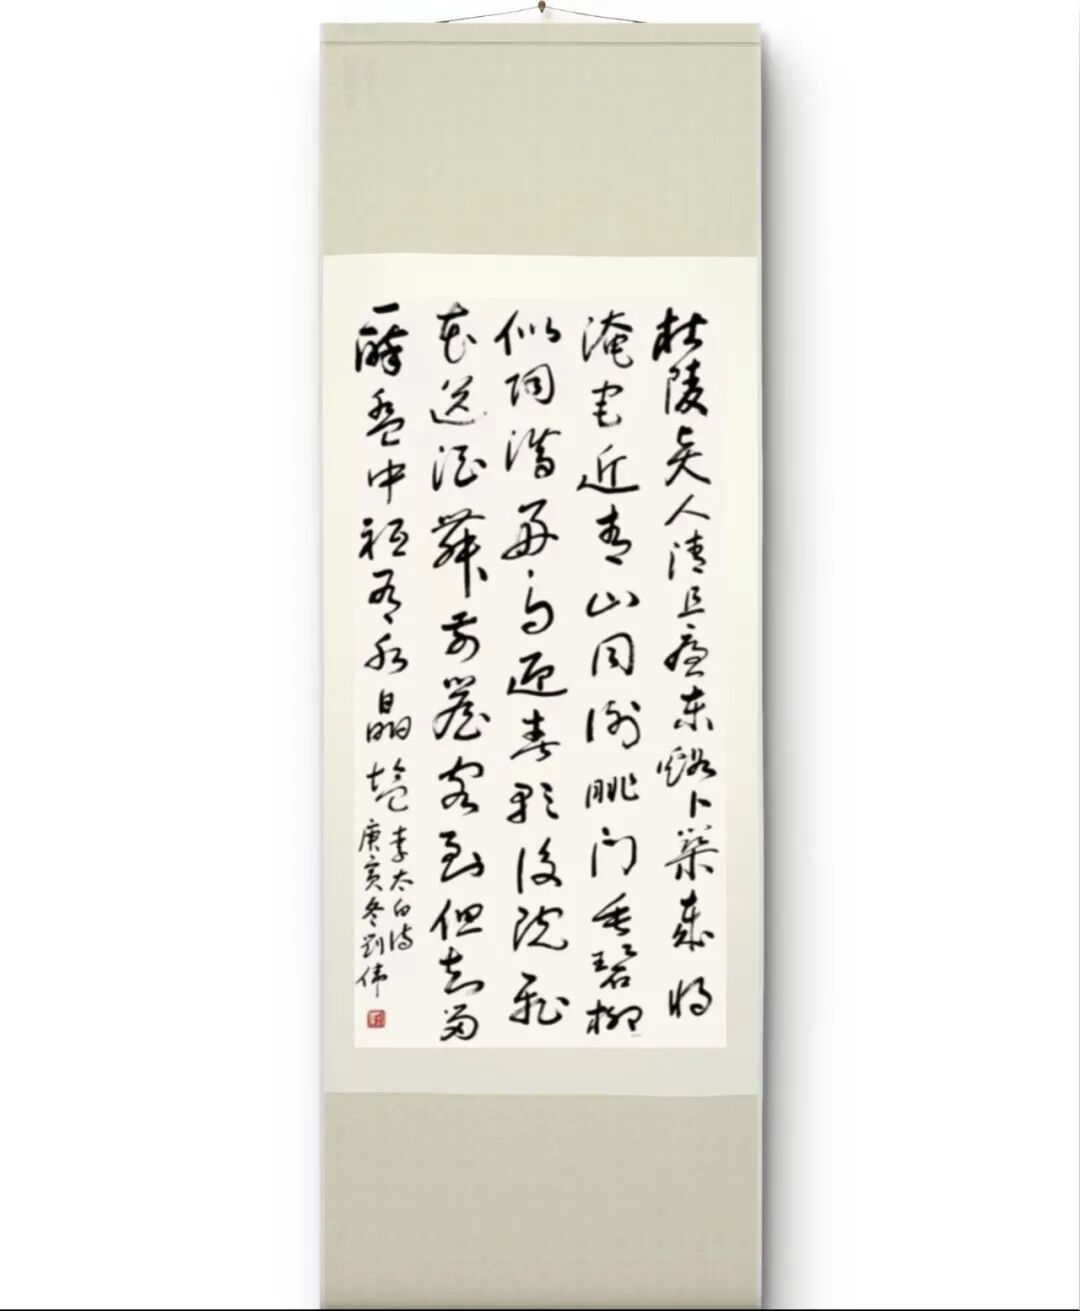 杜陵贤人清且廉东谿卜築歲将
淹宅近青山同谢朓门垂碧柳
似陶潜好鸟迎春歌後院飛
花送酒舞前簷客到但知留
一醉盤中祗有水晶盐
李太白诗
庚寅冬劉伟